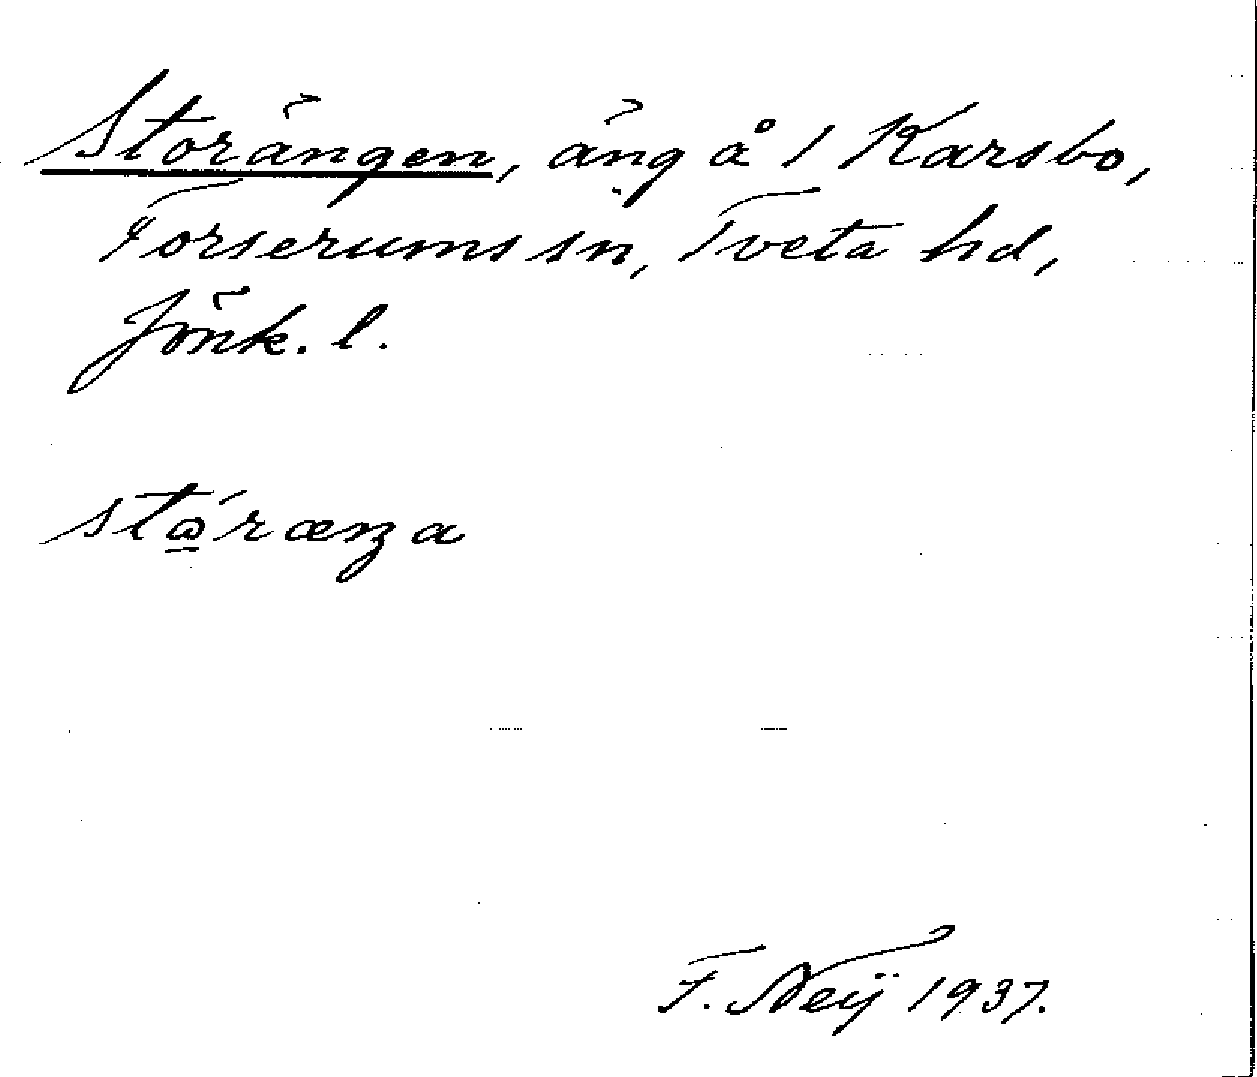 Storängen, äng å 1 Karsbo,
Forserums sn, Tveta hd,
Jönk. l.
F. Neij 1937.